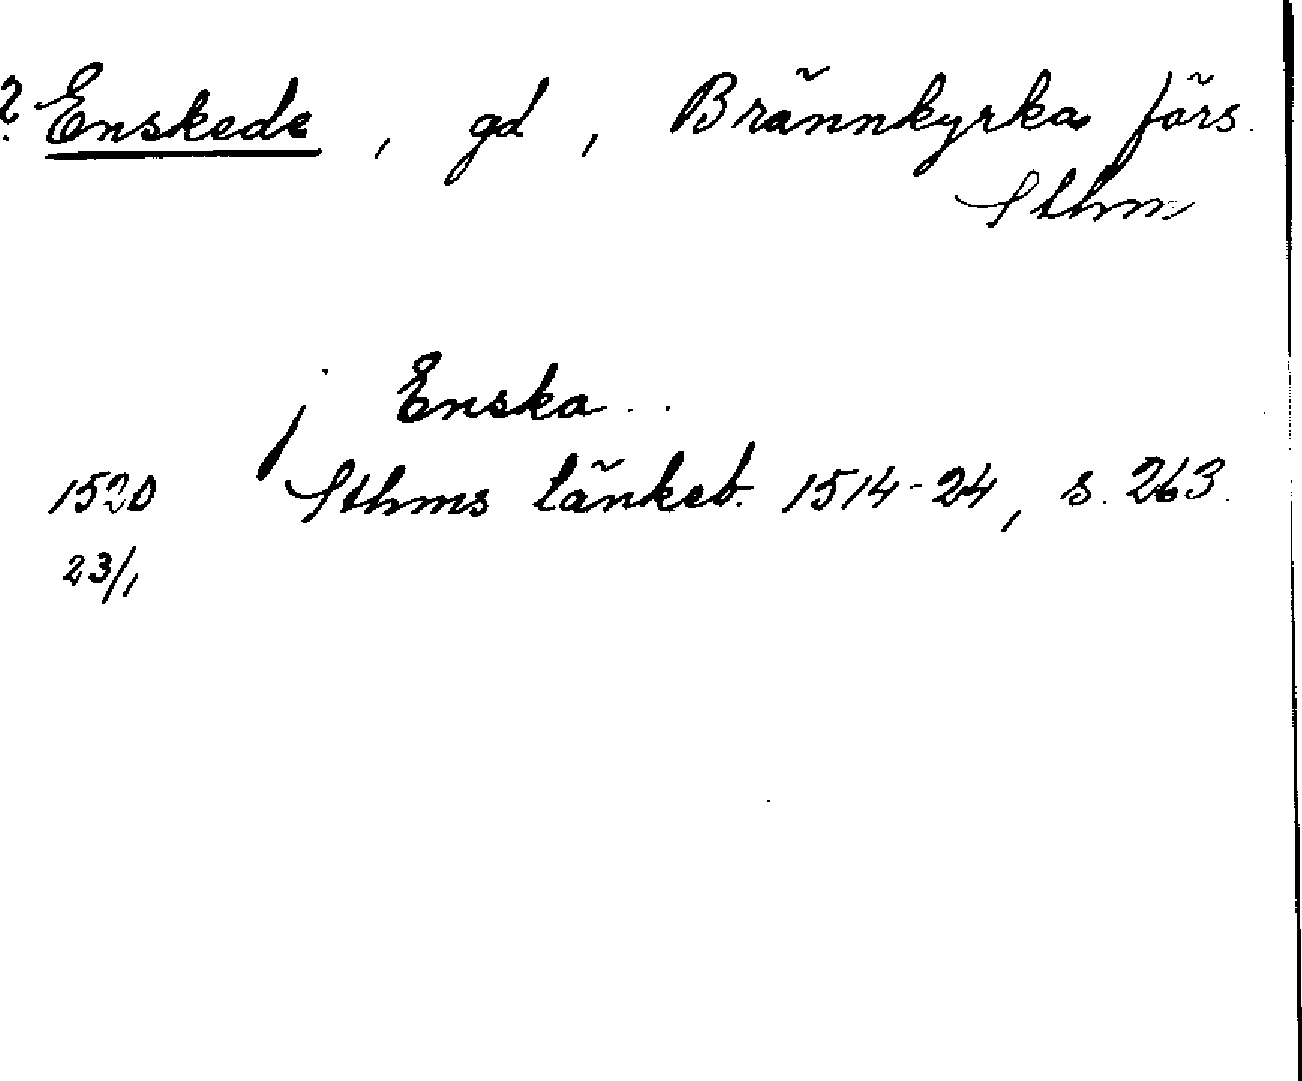 ? Enskede, gd, Brännkyrka förs.
Sthm
j Enska
1520 Sthms tänkeb. 1514-24, s. 263.
23/1